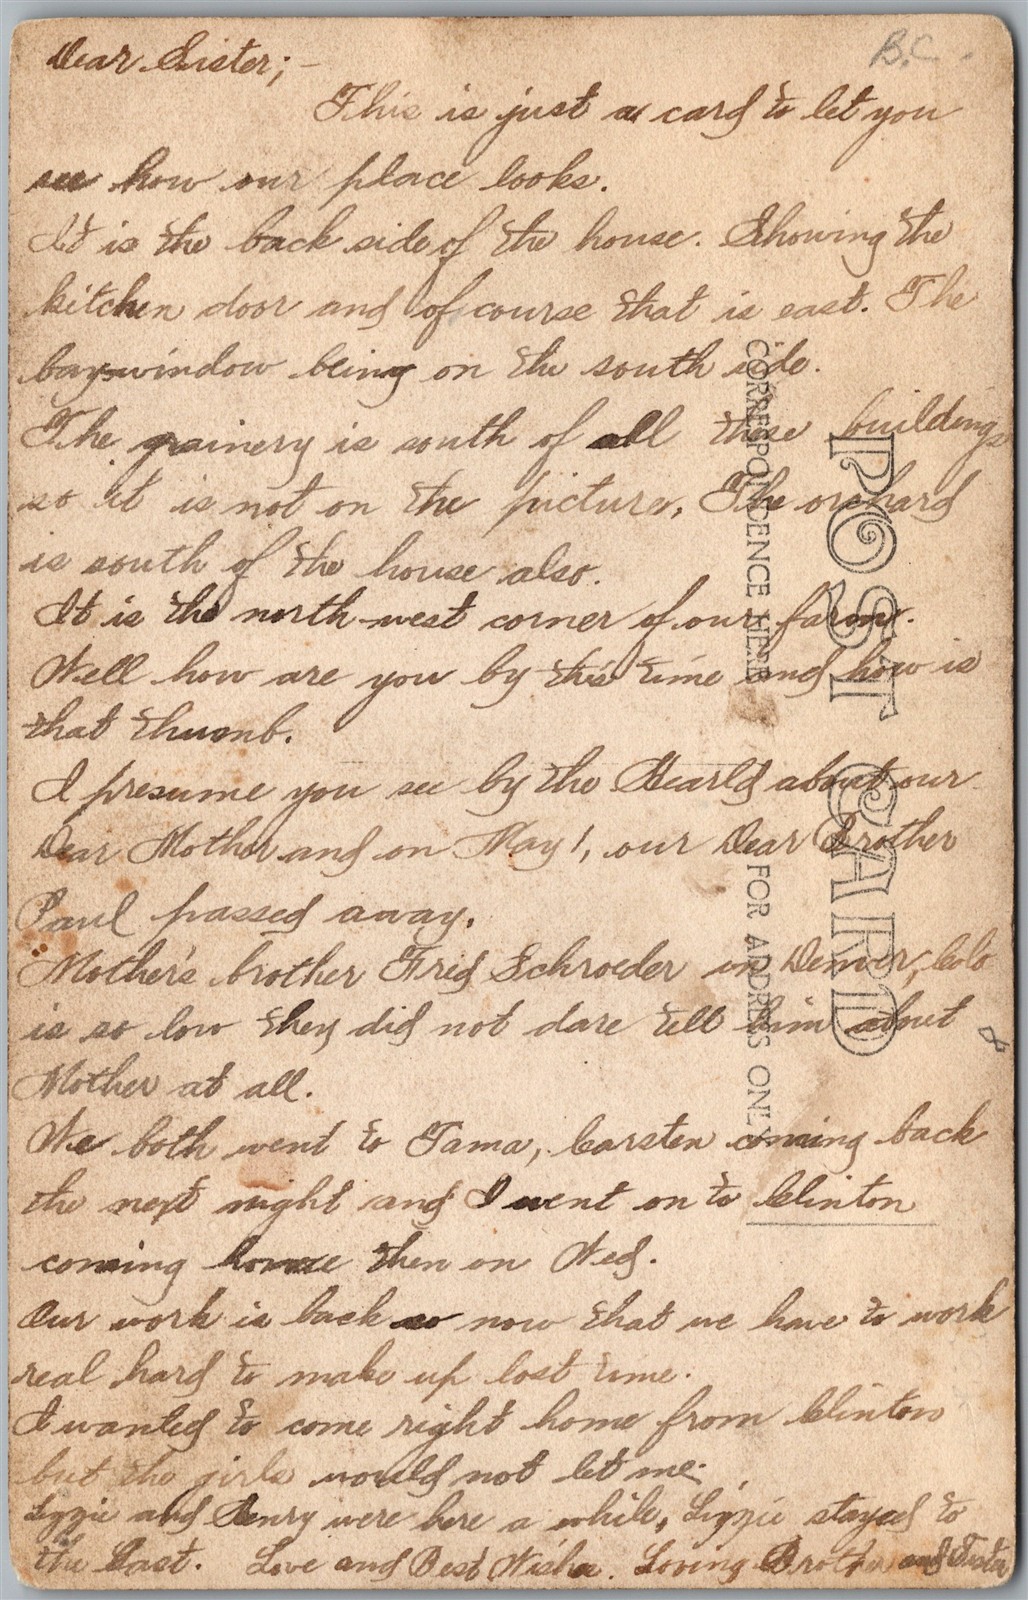 B.C.
Dear Sister; –
This is just a card to let you
see how our place looks.
It is the back side of the house. Showing the
kitchen door and of course that is east. The
bay-window being on the south side.
The grainery is south of all these buildings
so it is not on the picture. The orchard
is south of the house also.
It is the north-west corner of our farm.
Well how are you by this time and how is
that thumb.
I presume you see by the Hearld about our
Dear Mother and on May 1, our Dear Brother
Paul passed away.
Mother's brother Fred Schroeder in Denver, Colo
is so low they did not dare tell him about
Mother at all.
We both went to Tama, Carsten coming back
the next night and I went on to Clinton
coming home then on Wed.
Our work is back so now that we have to work
real hard to make up lost time.
I wanted to come right home from Clinton
but the girls would not let me.
Lizzie and Henry were here a while, Lizzie stayed to
the last. Love and Best Wishes. Loving Brother and Sister
POST CARD
CORRESPONDENCE HERE
FOR ADDRESS ONLY